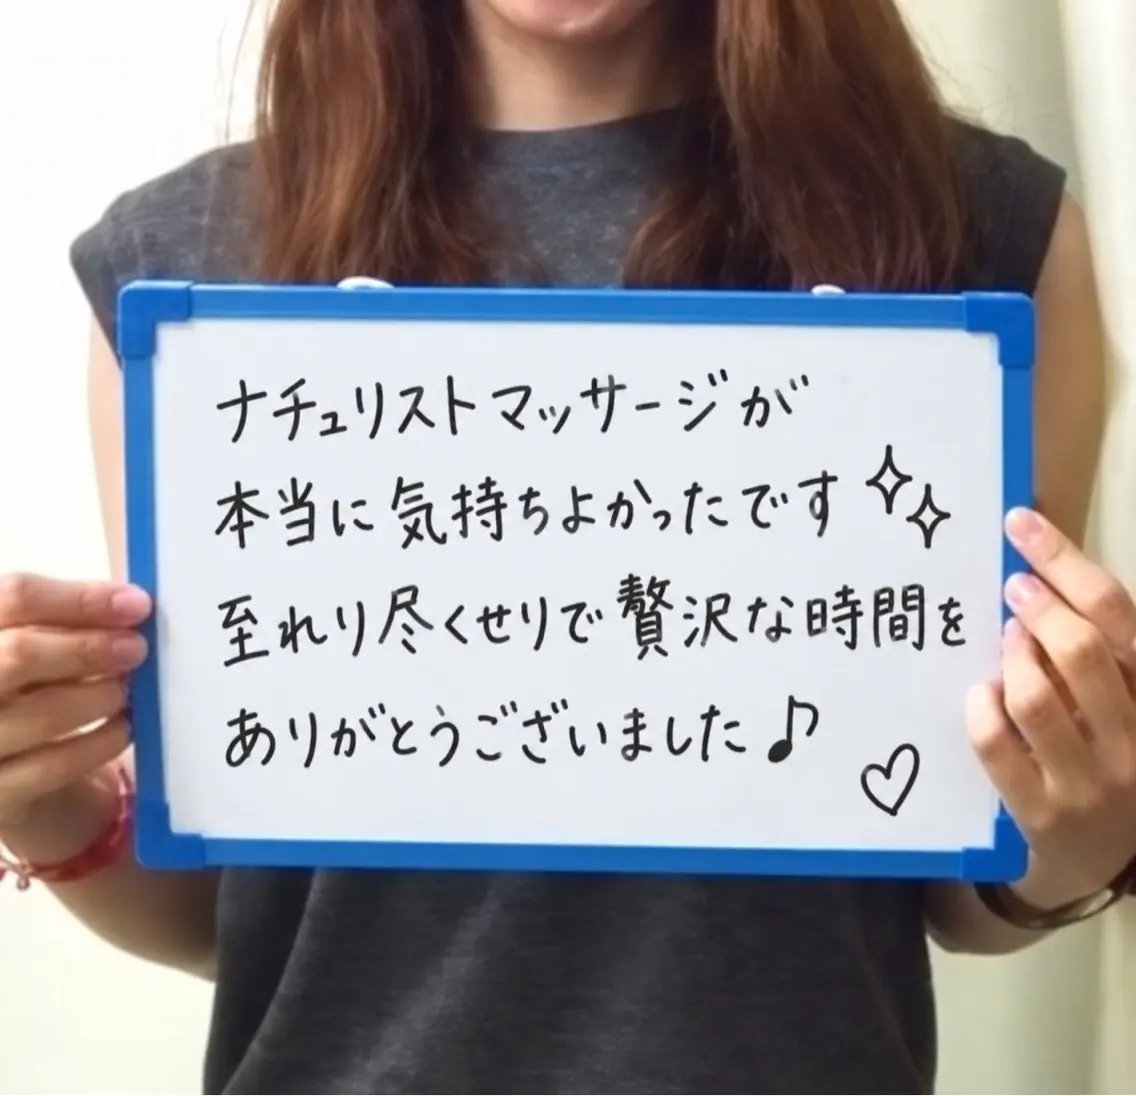 ナチュリストマッサージが
本当に気持ちよかったです
至れり尽くせりで贅沢な時間を
ありがとうございました♪